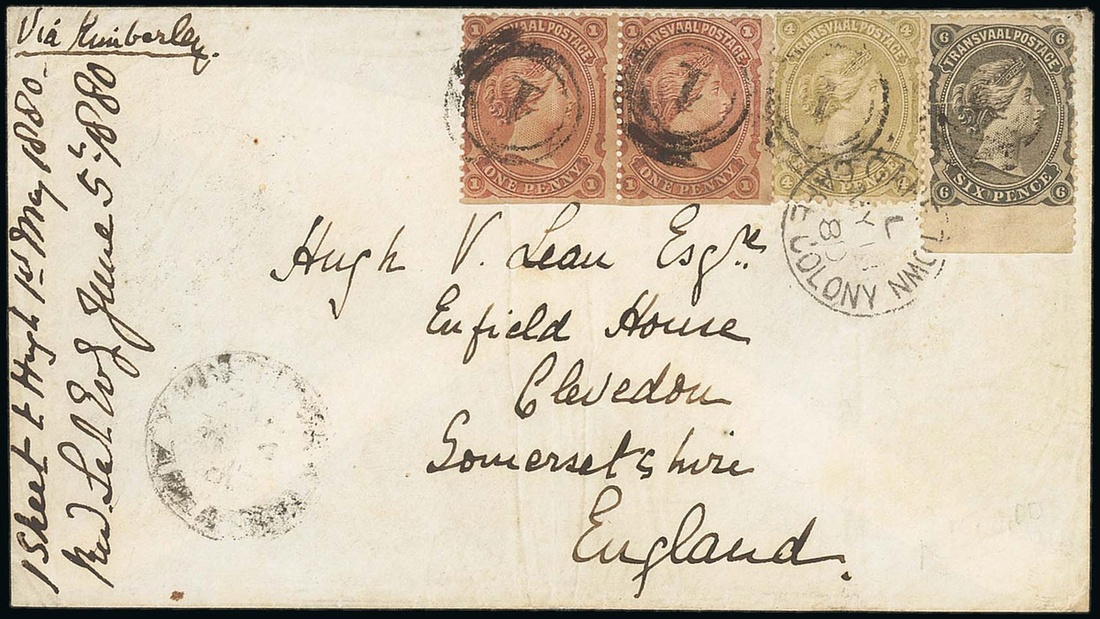 Via Kimberley.
1 Sheet to Hugh 1st May 1880.
Recd Sat Evg June 5th 1880
1 1
TRANSVAAL POSTAGE
ONE PENNY
1 1
1 1
TRANSVAAL POSTAGE
ONE PENNY
1 1
4 4
TRANSVAAL POSTAGE
PENCE
4 4
6 6
TRANSVAAL POSTAGE
SIX PENCE
6 6
1
1
1
COLONY
80
Hugh V. Lean Esqre
Enfield House
Clevedon
Somersetshire
England.